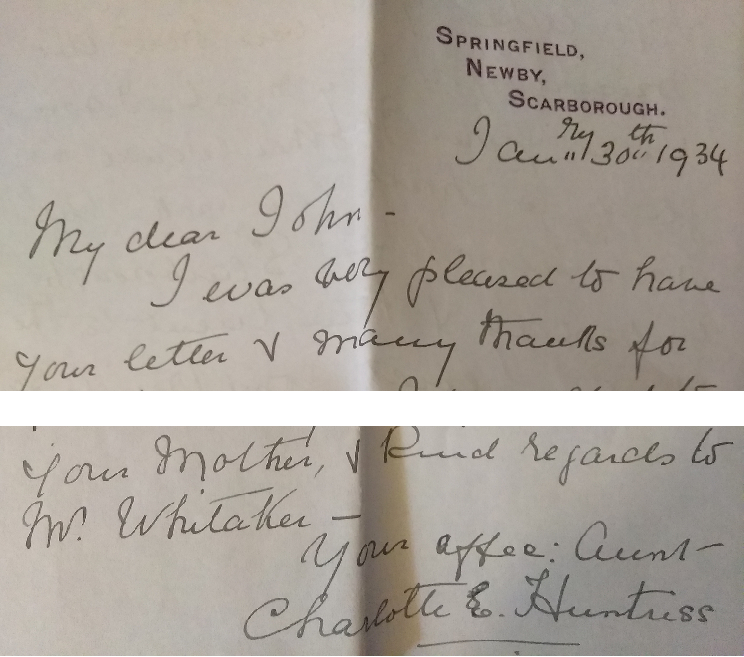 SPRINGFIELD,
NEWBY,
SCARBOROUGH.
Janry 30th 1934
My dear John -
I was very pleased to have
your letter & many thanks for
your Mother, & kind regards to
Mr. Whitaker —
Your affec: Aunt -
Charlotte E. Huntriss